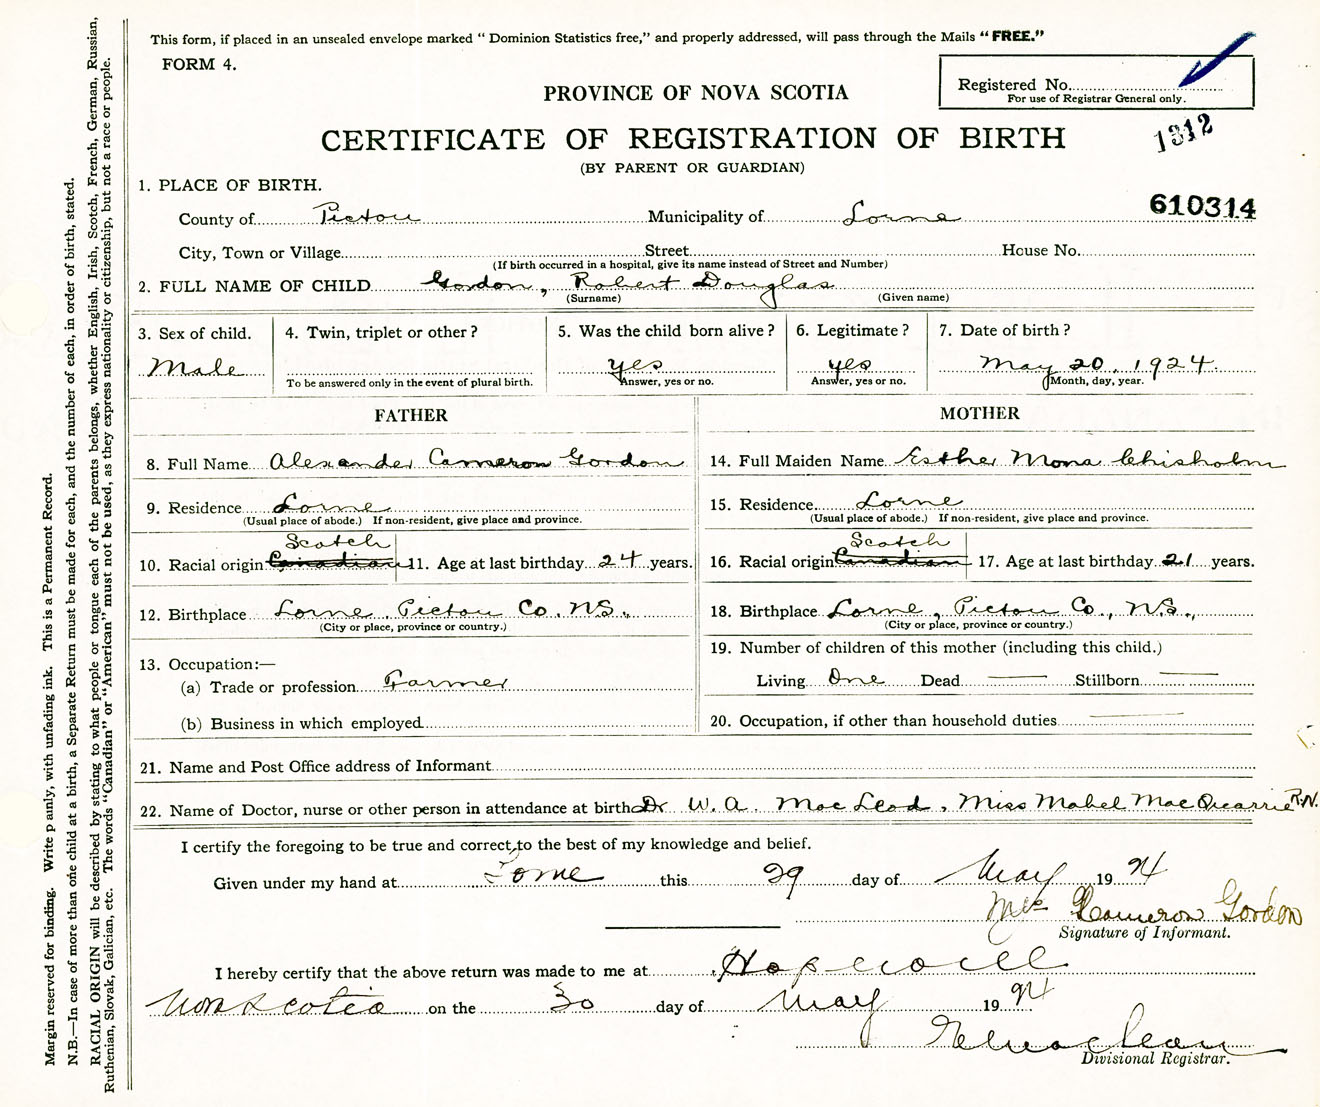 This form, if placed in an unsealed envelope marked “ Dominion Statistics free,” and properly addressed, will pass through the Mails “ FREE.”
FORM 4.
Registered No.
For use of Registrar General only.
PROVINCE OF NOVA SCOTIA
1312
CERTIFICATE OF REGISTRATION OF BIRTH
(BY PARENT OR GUARDIAN)
610314
1. PLACE OF BIRTH.
County of Pictou Municipality of Lorne
City, Town or Village Street House No.
(If birth occurred in a hospital, give its name instead of Street and Number)
2. FULL NAME OF CHILD Gordon, Robert Douglas
(Surname) (Given name)
3. Sex of child. 4. Twin, triplet or other? 5. Was the child born alive? 6. Legitimate? 7. Date of birth?
Male yes yes May 20, 1924.
To be answered only in the event of plural birth. Answer, yes or no. Answer, yes or no. (Month, day, year.
FATHER MOTHER
8. Full Name Alexander Cameron Gordon 14. Full Maiden Name Esther Mona Chisholm
9. Residence Lorne 15. Residence Lorne
(Usual place of abode.) If non-resident, give place and province. (Usual place of abode.) If non-resident, give place and province.
Scotch Scotch
10. Racial origin Canadian 11. Age at last birthday 24 years. 16. Racial origin Canadian 17. Age at last birthday 21 years.
12. Birthplace Lorne, Pictou Co. N.S. 18. Birthplace Lorne, Pictou Co., N.S.,
(City or place, province or country.) (City or place, province or country.)
13. Occupation:— 19. Number of children of this mother (including this child.)
(a) Trade or profession Farmer Living One Dead — Stillborn —
(b) Business in which employed 20. Occupation, if other than household duties —
21. Name and Post Office address of Informant
22. Name of Doctor, nurse or other person in attendance at birth Dr W. A. MacLeod, Miss Mabel MacQuarrie R.N.
I certify the foregoing to be true and correct to the best of my knowledge and belief.
Given under my hand at Lorne this 29 day of May 19 24
Mrs Cameron Gordon
Signature of Informant.
I hereby certify that the above return was made to me at Hopewell
Nova Scotia on the 30 day of May 19 24
Maclean
Divisional Registrar.
Margin reserved for binding. Write p ainly, with unfading ink. This is a Permanent Record.
N.B.—In case of more than one child at a birth, a Separate Return must be made for each, and the number of each, in order of birth, stated.
RACIAL ORIGIN will be described by stating to what people or tongue each of the parents belongs, whether English, Irish, Scotch, French, German, Russian,
Ruthenian, Slovak, Galician, etc. The words “Canadian” or “American” must not be used, as they express nationality or citizenship, but not a race or people.